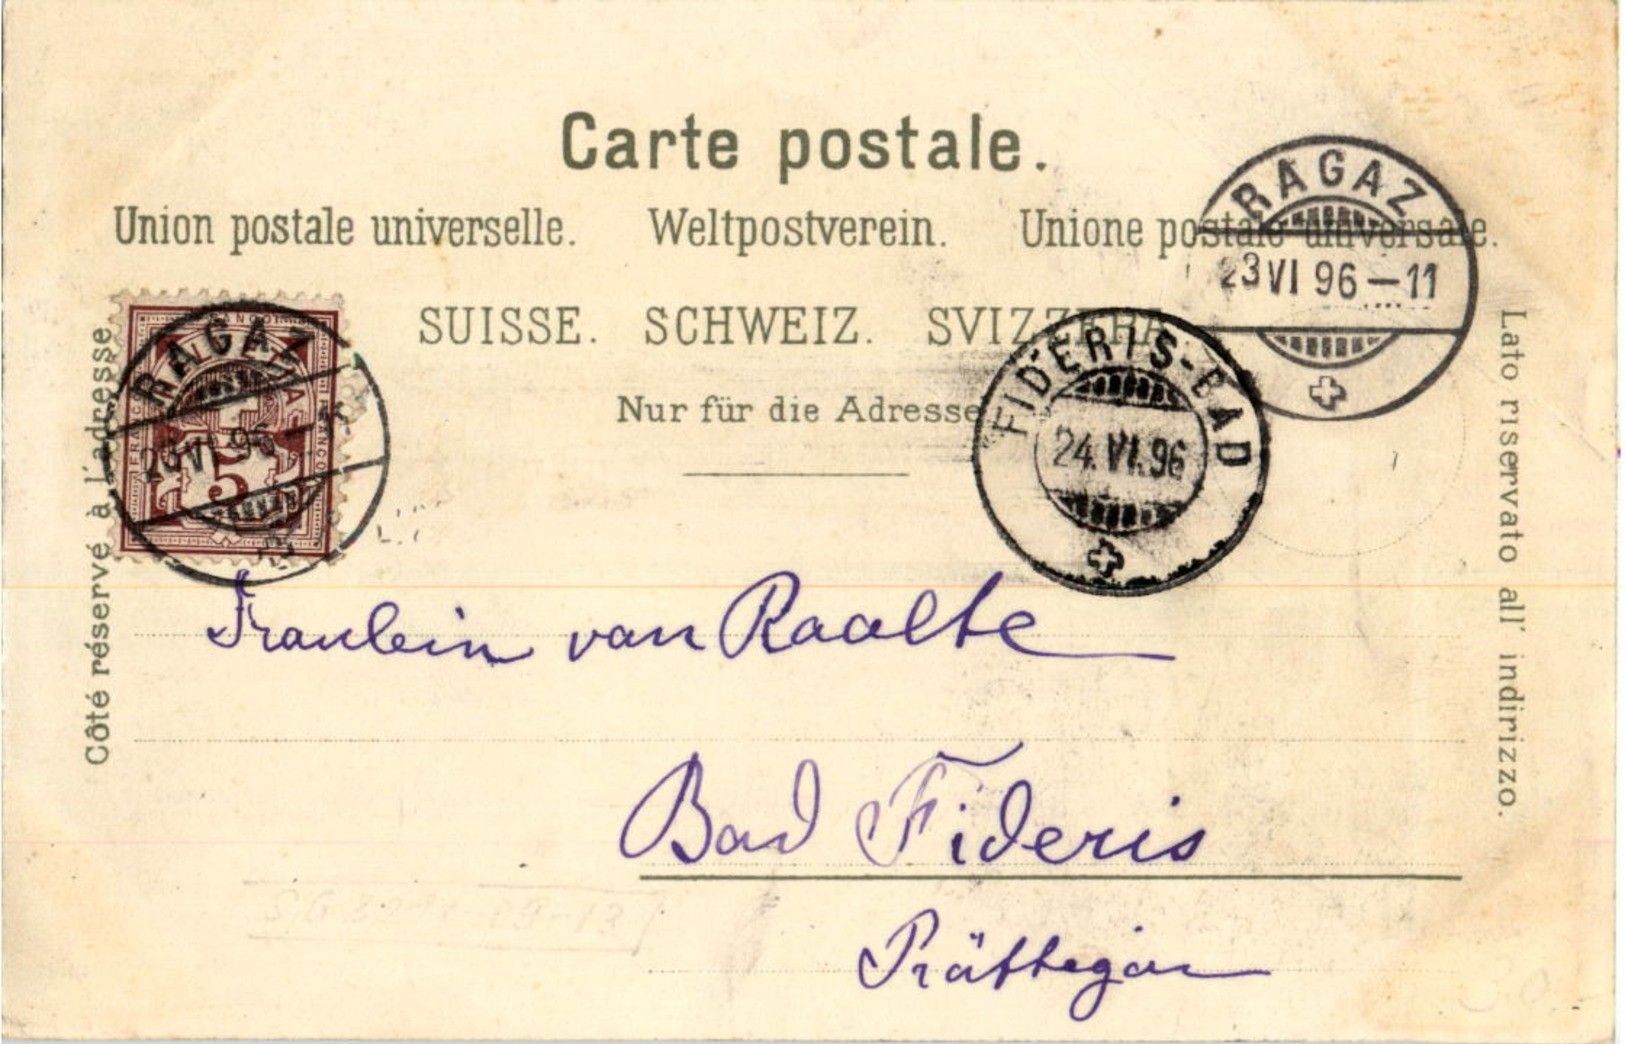 Carte postale.
Union postale universelle. Weltpostverein. Unione postale universale.
SUISSE. SCHWEIZ. SVIZZERA
Nur für die Adresse
Côté réservé à l'adresse
Lato riservato all' indirizzo.
RAGAZ
23 VI 96-11
FIDERIS-BAD
24.VI.96
RAGAZ
VI 96
FRANCO
5
Fraulein van Raalte
Bad Fideris
Prättegau